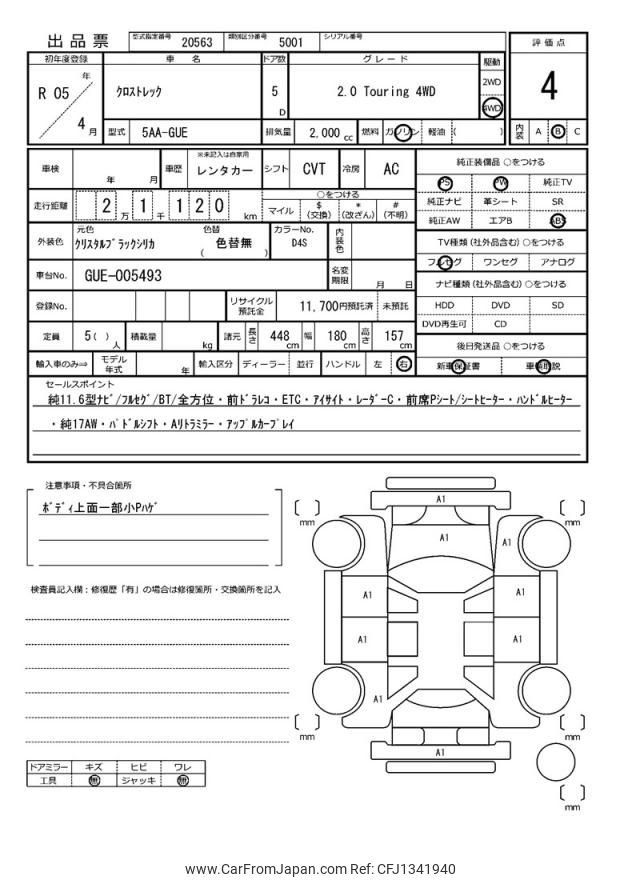 出品票 型式指定番号 20563 類別区分番号 5001 シリアル番号
初年度登録 車 名 ドア数 グレード 駆動 評価点
R 05 年 4 月 クロストレック 5 D 2.0 Touring 4WD 2WD 4WD 4
型式 5AA-GUE 排気量 2,000 cc 燃料 ガソリン 軽油 ( ) 内装 A B C
車検 年 月 車歴 ※未記入は自家用 レンタカー シフト CVT 冷房 AC
走行距離 2 万 1 千 1 2 0 km ○をつける マイル $ (交換) * (改ざん) # (不明)
外装色 元色 クリスタルブラックシリカ 色替 ( 色替無 ) カラーNo. D4S 内装色
車台No. GUE-005493 名変期限 月 日
登録No. リサイクル預託金 11,700円預託済 未預託
定員 5( ) 人 積載量 kg 諸元 長さ 448 cm 幅 180 cm 高さ 157 cm
輸入車のみ⇒ モデル年式 年 輸入区分 ディーラー 並行 ハンドル 左 右
純正装備品 ○をつける
PS PW 純正TV
純正ナビ 革シート SR
純正AW エアB ABS
TV種類 (社外品含む) ○をつける
フルセグ ワンセグ アナログ
ナビ種類 (社外品含む) ○をつける
HDD DVD SD
DVD再生可 CD
後日発送品 ○をつける
新車保証書 車輌取説
セールスポイント
純11.6型ナビ/フルセグ/BT/全方位・前ドラレコ・ETC・アイサイト・レーダーC・前席Pシート/シートヒーター・ハンドルヒーター
・純17AW・パドルシフト・Aリトラミラー・アップルカープレイ
注意事項・不具合箇所
ボディ上面一部小Pハゲ
検査員記入欄:修復歴「有」の場合は修復箇所・交換箇所を記入
ドアミラー キズ ヒビ ワレ
工具 無 ジャッキ 無
A1
[ ] mm [ ] mm
A1 A1
A1 A1
A1 A1
A1
[ ] mm [ ] mm
A1
[ ] mm
www.CarFromJapan.com Ref: CFJ1341940